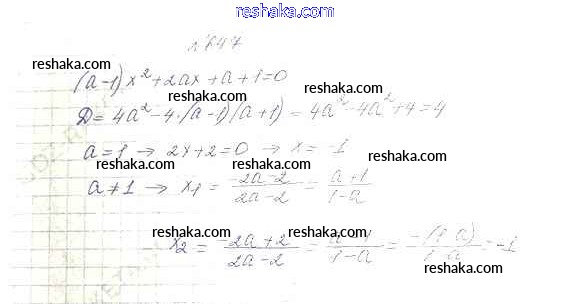 reshaka.com
№647
reshaka.com
(a-1)x²+2ax+a+1=0
reshaka.com reshaka.com
D=4a²-4·(a-1)(a+1)=4a²-4a²+4=4
reshaka.com
a=1 → 2x+2=0 → x=-1
reshaka.com reshaka.com
a≠1 → x₁ = (-2a-2)/(2a-2) = (a+1)/(1-a)
reshaka.com
reshaka.com reshaka.com
x₂ = (-2a+2)/(2a-2) = (a-1)/(1-a) = (-(1-a))/(1-a) = -1
reshaka.com reshaka.com